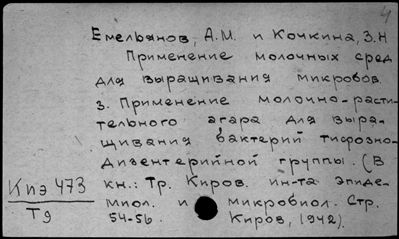 4
Емельянов, А.М. и Кочкина, З.Н
Применение молочных сред
для выращивания микробов
3. Применение молочно-расти-
тельного агара для выра-
щивания бактерий тифозно-
дизентерийной группы. (В
Кпэ 473 кн.: Тр. Киров. ин-та эпиде-
Т9 миол. и микробиол. Стр.
54-56. Киров, 1942).